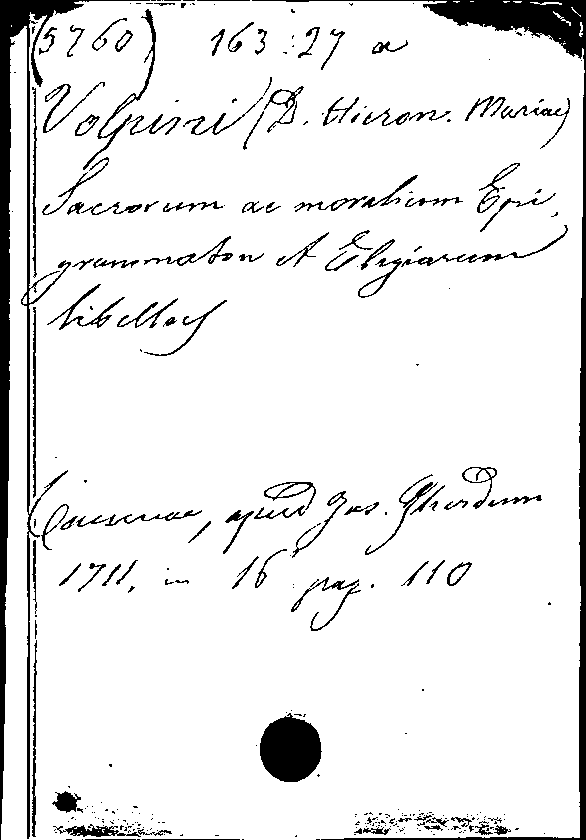 (5760) 163:27 a
Volpini (D. Hieron. Mariae)
Sacrorum ac moralium Epi,
grammaton et Elegiarum
libellus
Caesenae, apud Jos. Gherdum
1711. in 16° pag. 110